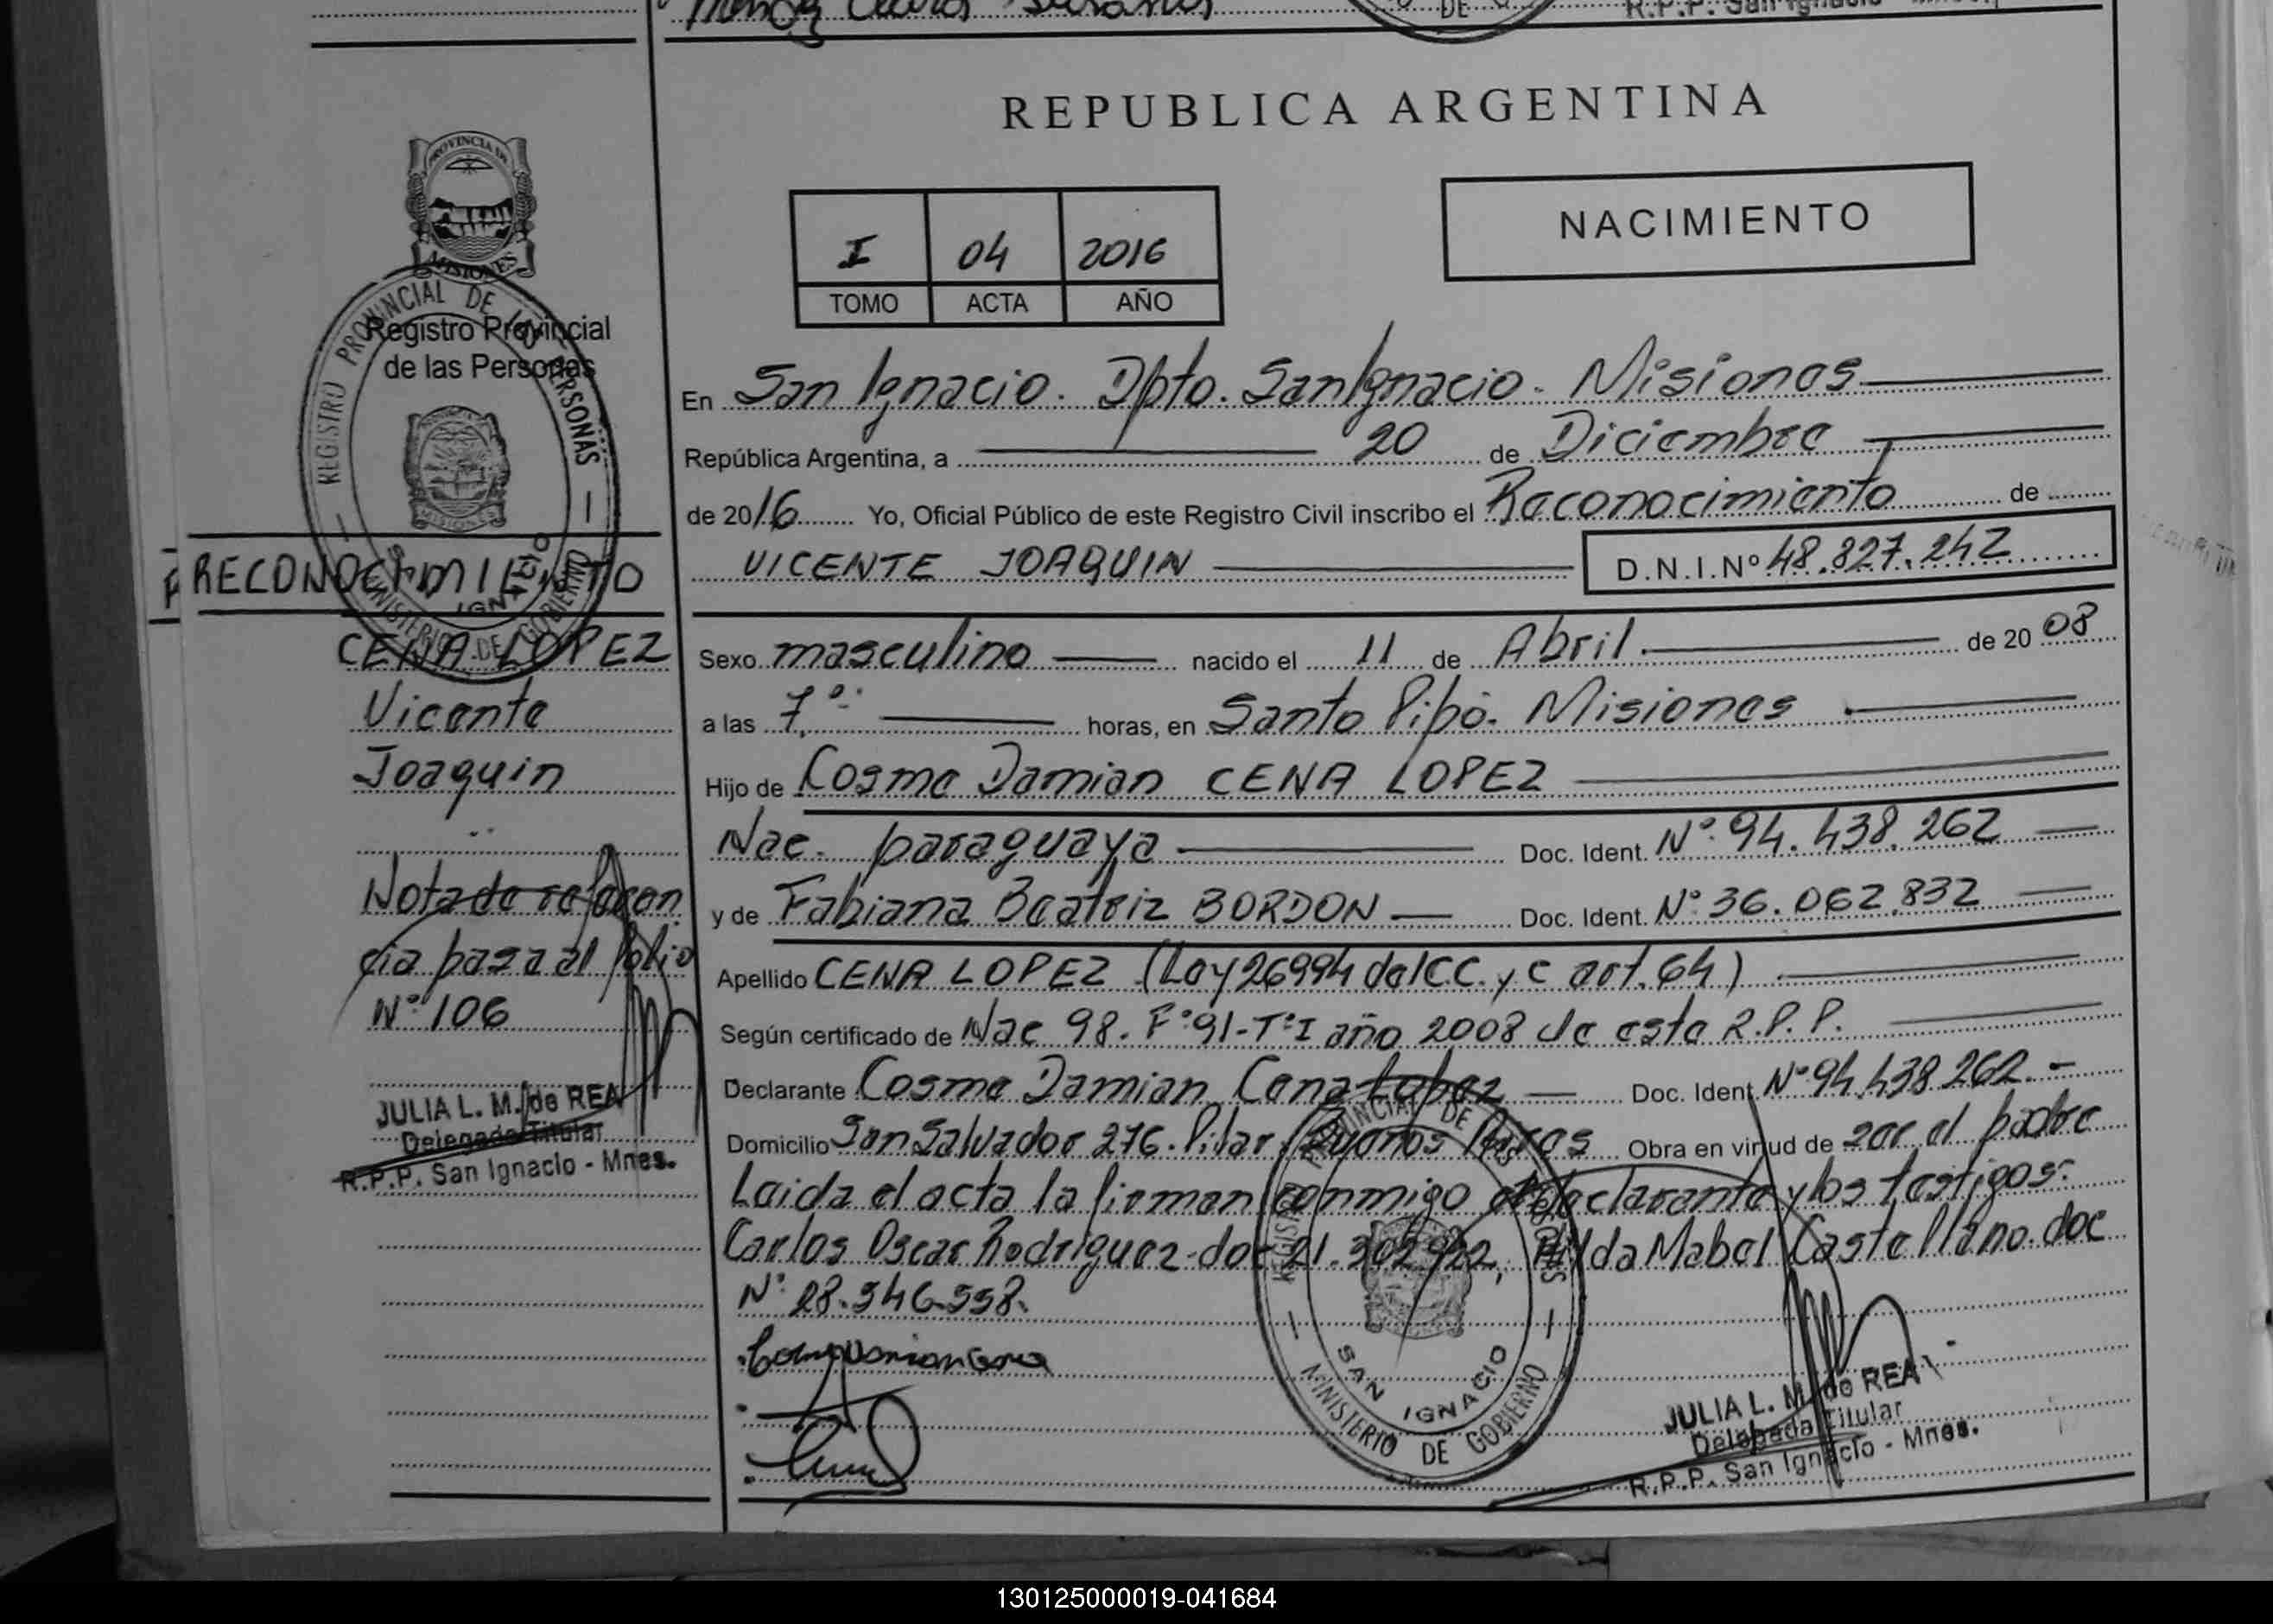 R.P.P. San Ignacio
REPUBLICA ARGENTINA
NACIMIENTO
I 04 2016
TOMO ACTA AÑO
PROVINCIA DE
MISIONES
Registro Provincial
de las Personas
REGISTRO PROVINCIAL DE LAS PERSONAS
SAN IGNACIO
MINISTERIO DE GOBIERNO
RECONOCIMIENTO
CENA LOPEZ
Vicente
Joaquin
Nota de referen
cia pasa al folio
Nº 106
JULIA L. M. de REA
Delegada Titular
R.P.P. San Ignacio - Mnes.
En San Ignacio. Dpto. San Ignacio - Misiones
República Argentina, a 20 de Diciembre
de 2016 Yo, Oficial Público de este Registro Civil inscribo el Reconocimiento de
VICENTE JOAQUIN D.N.I.Nº 48.827.242
Sexo masculino nacido el 11 de Abril de 20 08
a las 7 horas, en Santo Pipó. Misiones
Hijo de Cosme Damian CENA LOPEZ
Nac. paraguaya Doc. Ident. Nº 94.438.262
y de Fabiana Beatriz BORDON Doc. Ident. Nº 36.062.832
Apellido CENA LOPEZ (Ley 26994 del C.C. y C art. 64)
Según certificado de Nac 98. Fº 91-TºI año 2008 de este R.P.P.
Declarante Cosme Damian Cena Lopez Doc. Ident. Nº 94.438.262.-
Domicilio San Salvador 276. Pilar. Buenos Aires Obra en virtud de ser el padre
Leida el acta la firman conmigo el declarante y los testigos:
Carlos Oscar Rodriguez - doc 21.302.922, Hilda Mabel Castellano. doc
Nº 28.546.558.
REGISTRO PROVINCIAL DE LAS PERSONAS
SAN IGNACIO
MINISTERIO DE GOBIERNO
JULIA L. M. de REA
Delegada Titular
R.P.P. San Ignacio - Mnes.
130125000019-041684